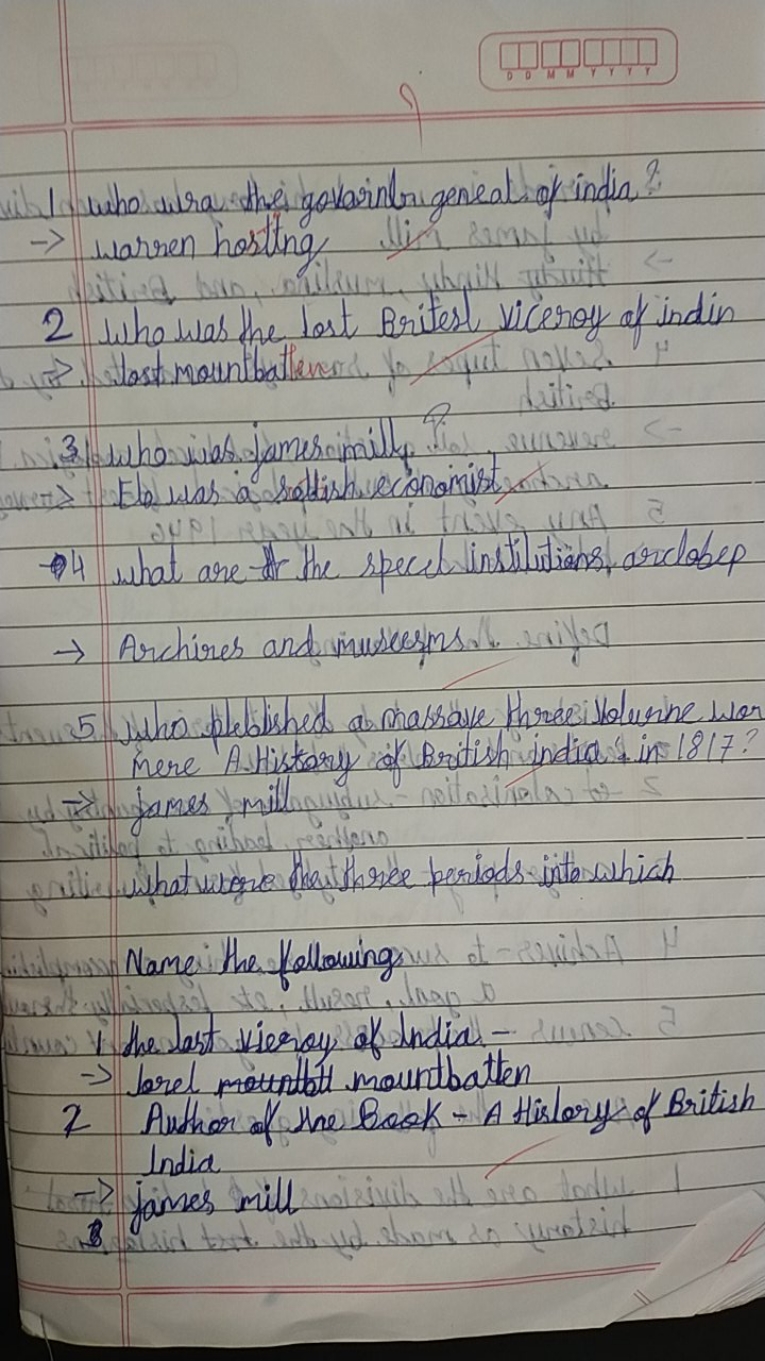 D D M M Y Y Y Y
1 who wra the govarinlr genieat of india?
-> warren hosting
2 who was the lost Britesl viceroy of indin
=> lost mountbatten
3 who was james mill?
=> Ele was a scottish economist
4 what are the specel institutions arclobep
-> Archires and museesms
5 who pleblished a massave three volurine wor
mere A History of British india in 1817?
=> james mill
what were the three periods into which
Name the following
1 the last vicroy of India -
-> lorel mountbatten
2 Author of the Book - A History of British
India
-> james mill
3